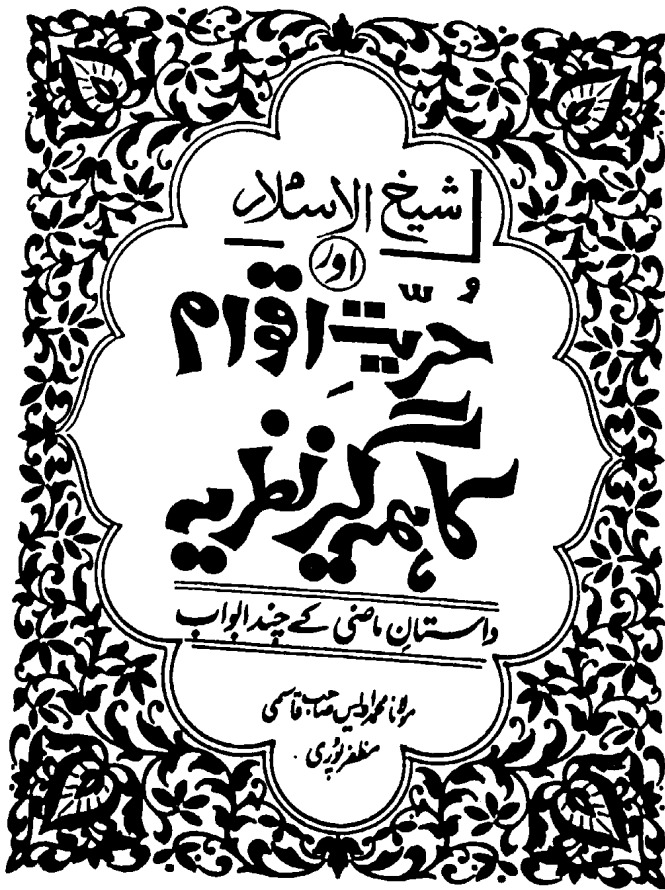 شیخ الاسلام
اور
حُرّیتِ اقوام
کا ہمہ گیر نظریہ
داستانِ ماضی کے چند ابواب
مولانا محمد اویس صاحب قاسمی
مظفرپوری